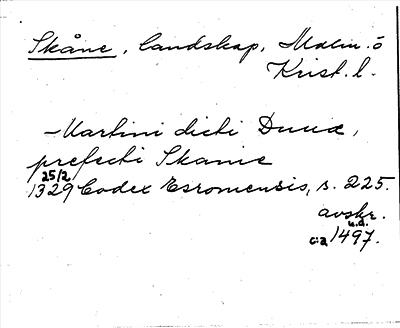 Skåne, landskap, Malm. o
Krist. l.
– Martini dicti Duuæ,
prefecti Skanie
25/2
1329 Codex Esromensis, s. 225.
avskr.
u.d.
ca 1497.